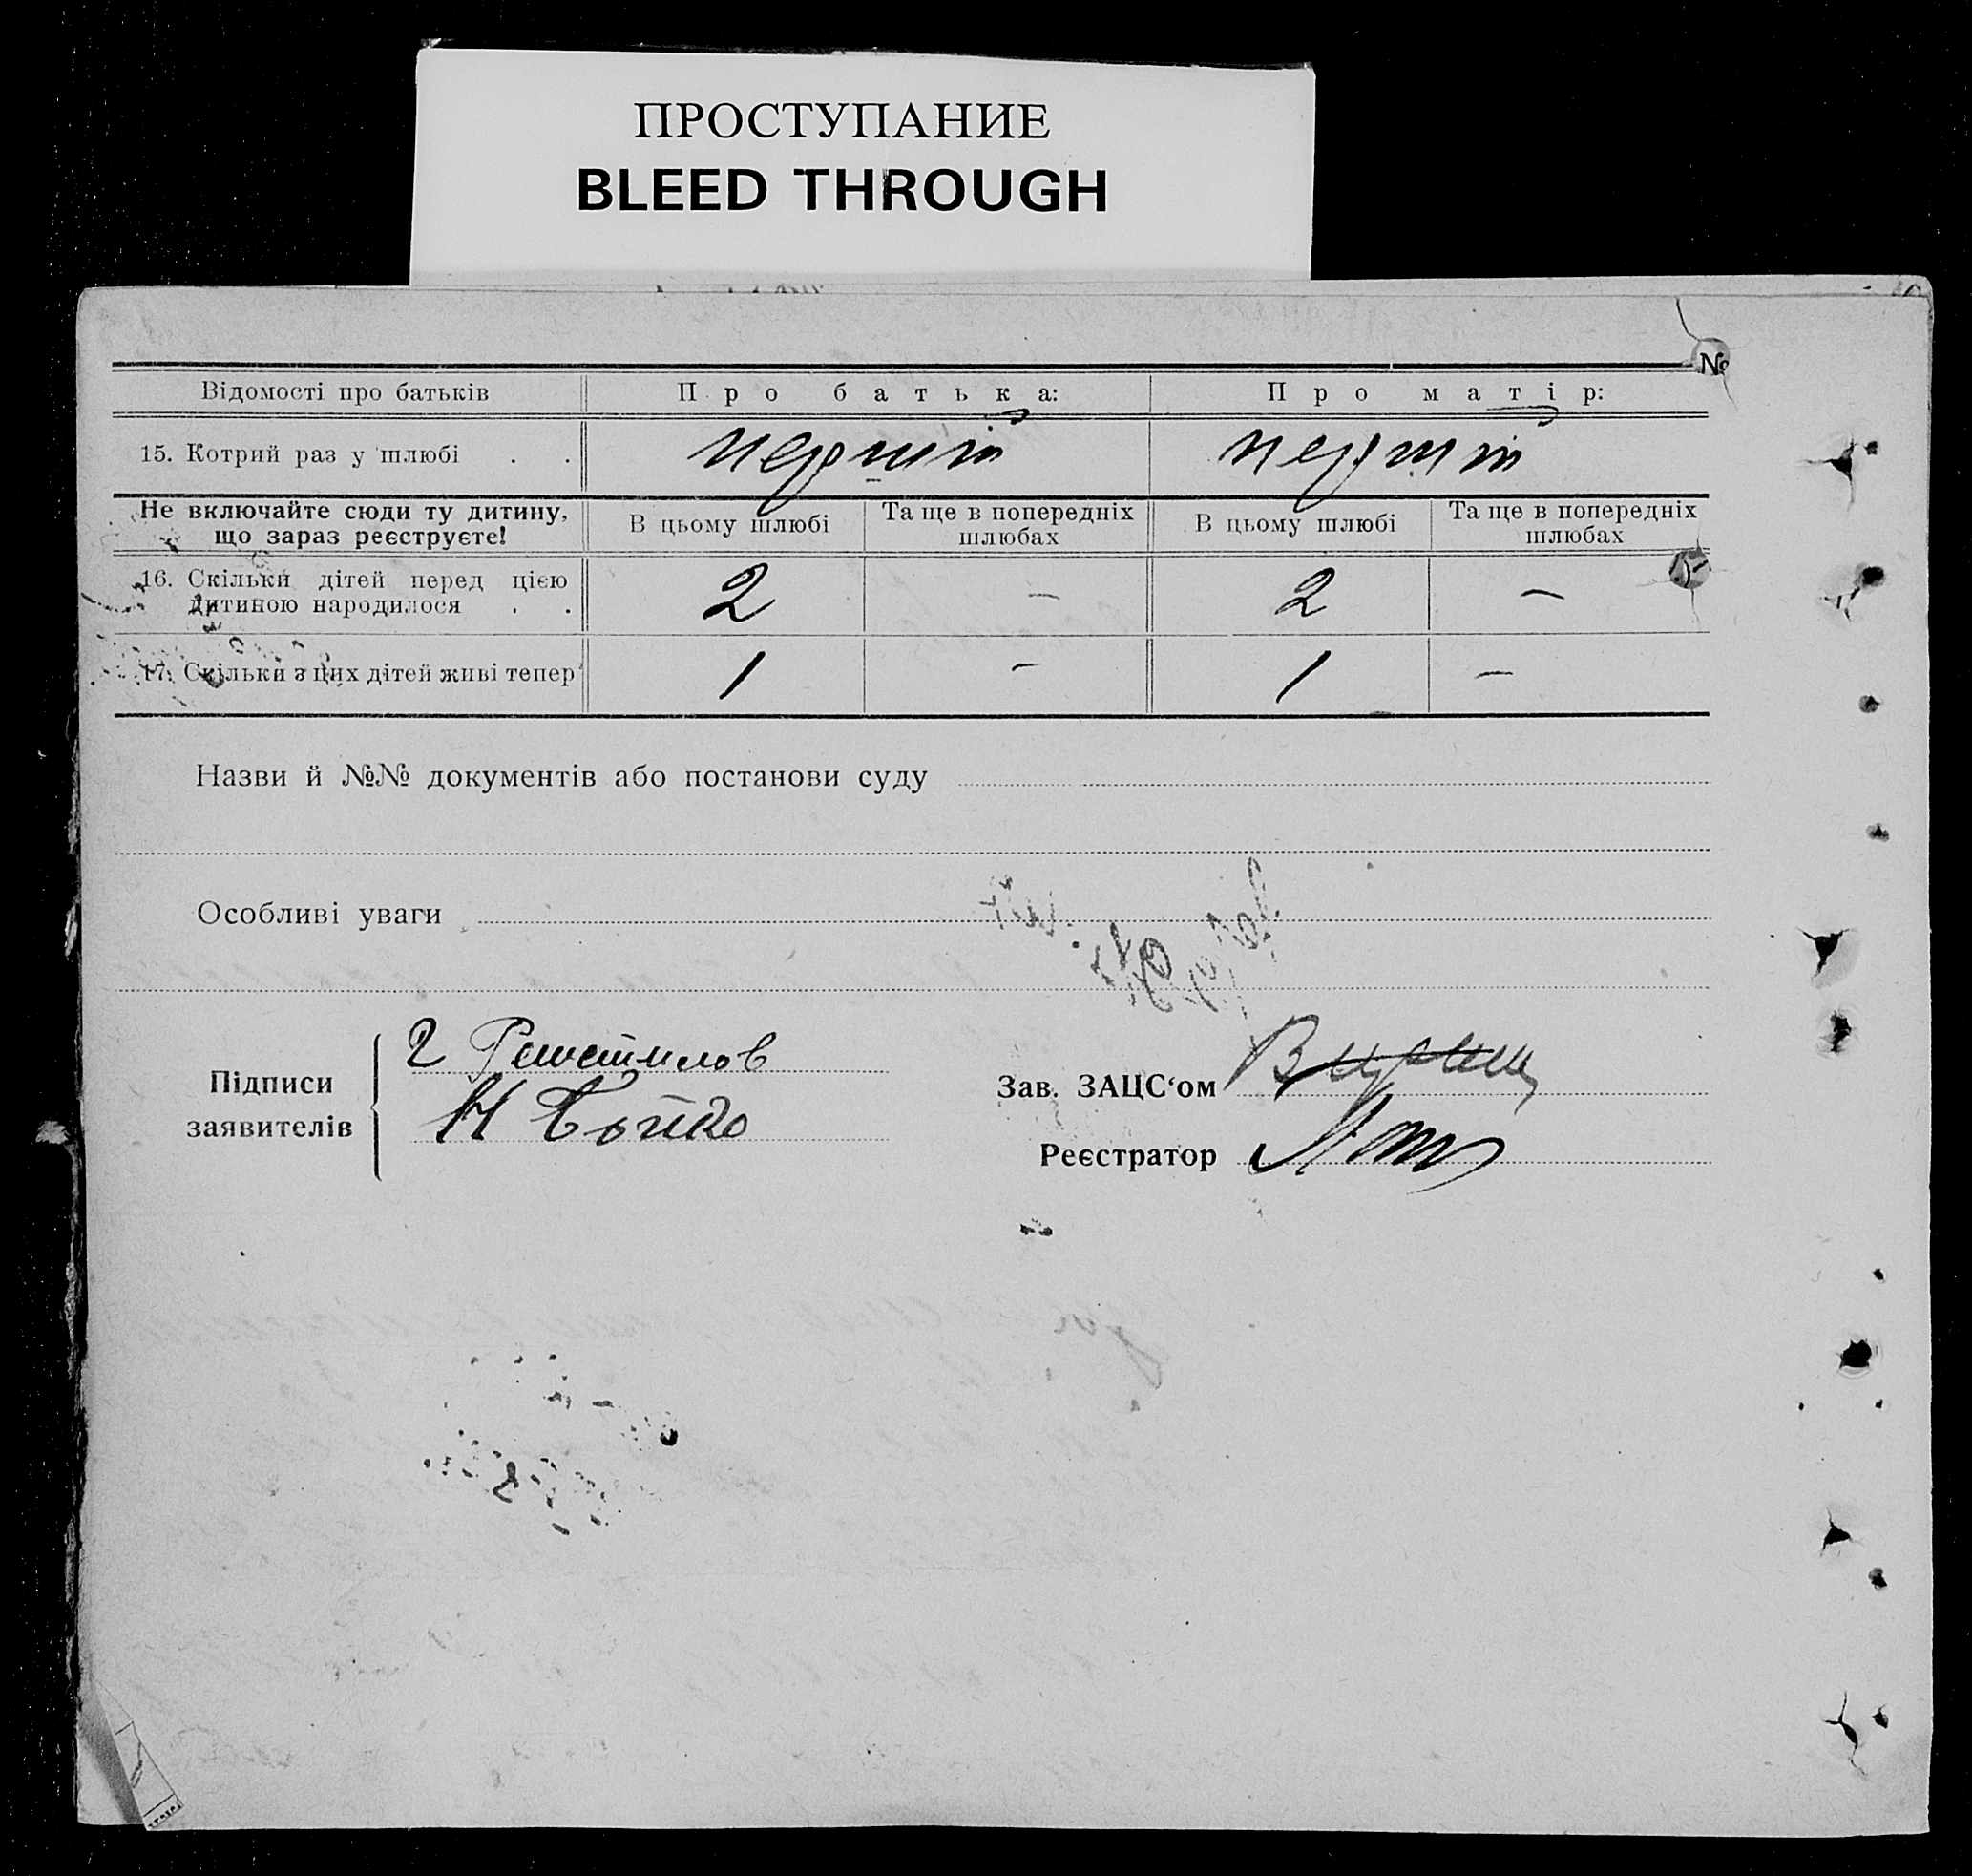 ПРОСТУПАНИЕ
BLEED THROUGH
№
Відомості про батьків Про батька: Про матір:
15. Котрий раз у шлюбі . . перший перший
Не включайте сюди ту дитину, що зараз реєструєте! В цьому шлюбі Та ще в попередніх шлюбах В цьому шлюбі Та ще в попередніх шлюбах
16. Скільки дітей перед цією
дитиною народилося . . 2 — 2 —
17. Скільки з цих дітей живі тепер 1 — 1 —
Назви й №№ документів або постанови суду
Особливі уваги
Підписи
заявителів
Г Решетилов
Н Бойко
Зав. ЗАЦС‘ом
Реєстратор